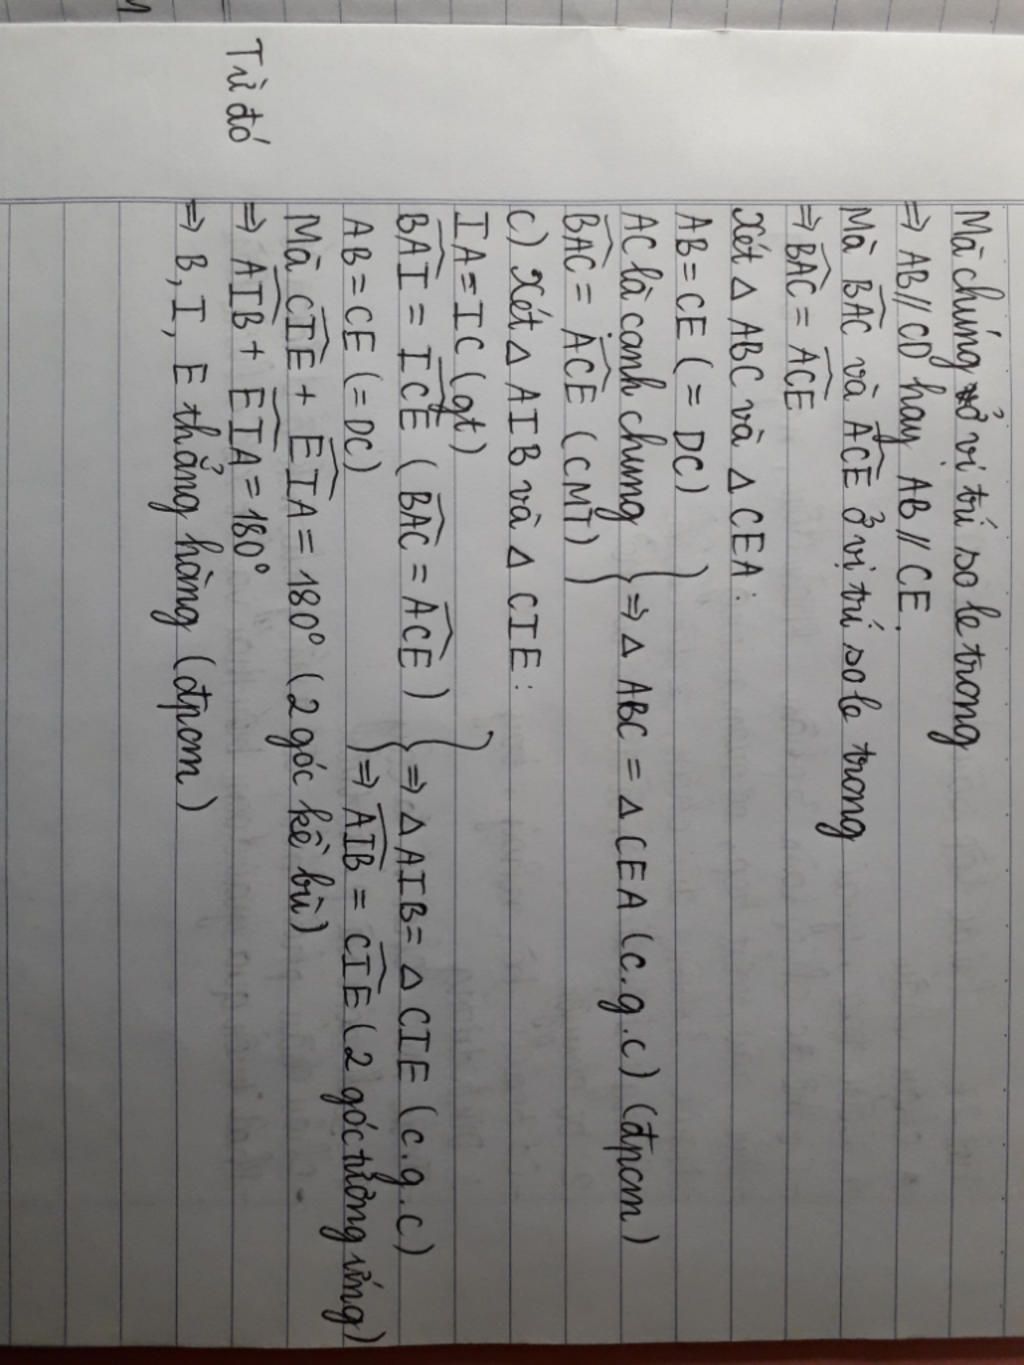 Mà chúng ở vị trí so le trong
⇒ AB // CD hay AB // CE.
Mà BAC và ACE ở vị trí so le trong
⇒ BAC = ACE
Xét Δ ABC và Δ CEA:
AB = CE (= DC)
AC là cạnh chung } ⇒ Δ ABC = Δ CEA (c.g.c) (đpcm)
BAC = ACE (CMT)
c) Xét Δ AIB và Δ CIE:
IA = IC (gt)
BAI = ICE (BAC = ACE) } ⇒ Δ AIB = Δ CIE (c.g.c)
AB = CE (= DC) } ⇒ AIB = CIE (2 góc tương ứng)
Mà CIE + EIA = 180° (2 góc kề bù)
Từ đó ⇒ AIB + EIA = 180°
⇒ B, I, E thẳng hàng (đpcm)